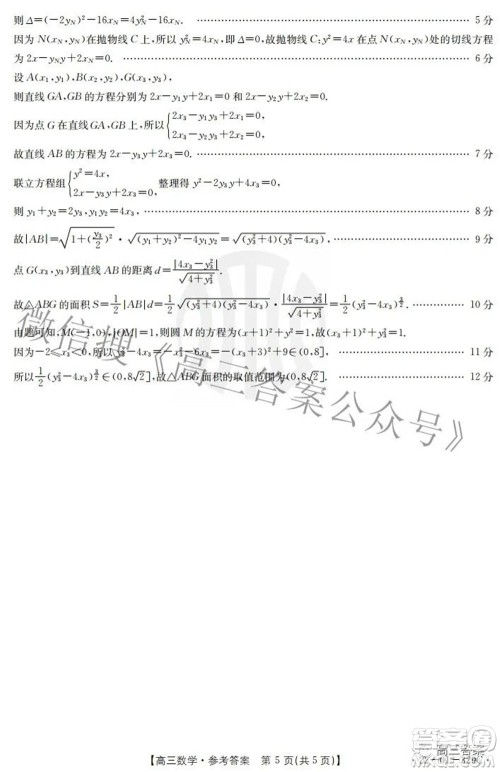 则Δ=(-2y_N)²-16x_N=4y_N²-16x_N. …… 5分
因为 N(x_N,y_N)在抛物线C上,所以 y_N²=4x_N,即Δ=0,故抛物线C:y²=4x在点N(x_N,y_N)处的切线方程
为2x-y_Ny+2x_N=0. …… 6分
设A(x₁,y₁),B(x₂,y₂),G(x₃,y₃),
则直线GA,GB的方程分别为2x-y₁y+2x₁=0和2x-y₂y+2x₂=0.
因为点G在直线GA,GB上,所以{2x₃-y₁y₃+2x₁=0, 2x₃-y₂y₃+2x₂=0,
故直线AB的方程为2x-y₃y+2x₃=0. …… 7分
联立方程组{y²=4x, 2x-y₃y+2x₃=0, 整理得y²-2y₃y+4x₃=0,
则y₁+y₂=2y₃,y₁y₂=4x₃, …… 8分
故|AB|=√(1+(y₃/2)²)·√((y₁+y₂)²-4y₁y₂)=√((y₃²+4)(y₃²-4x₃)), …… 9分
点G(x₃,y₃)到直线AB的距离d=|4x₃-y₃²|/√(4+y₃²).
故△ABG的面积S=1/2|AB|d=1/2√((y₃²+4)(y₃²-4x₃))·|4x₃-y₃²|/√(4+y₃²)=1/2(y₃²-4x₃)^(3/2). …… 10分
由题可知,M(-1,0),|OM|=1,则圆M的方程为(x+1)²+y²=1,故(x₃+1)²+y₃²=1.
因为-2≤x₃<0,所以y₃²-4x₃=-x₃²-6x₃=-(x₃+3)²+9∈(0,8], …… 11分
所以1/2(y₃²-4x₃)^(3/2)∈(0,8√2],故△ABG面积的取值范围为(0,8√2]. …… 12分
微信搜《高三答案公众号》
【高三数学·参考答案 第5页(共5页)】